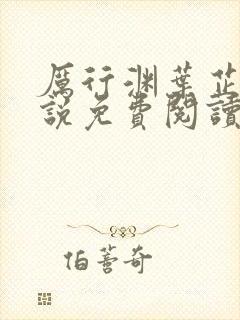 厲行渊葉芷
說免費閱讀
伯蒼奇